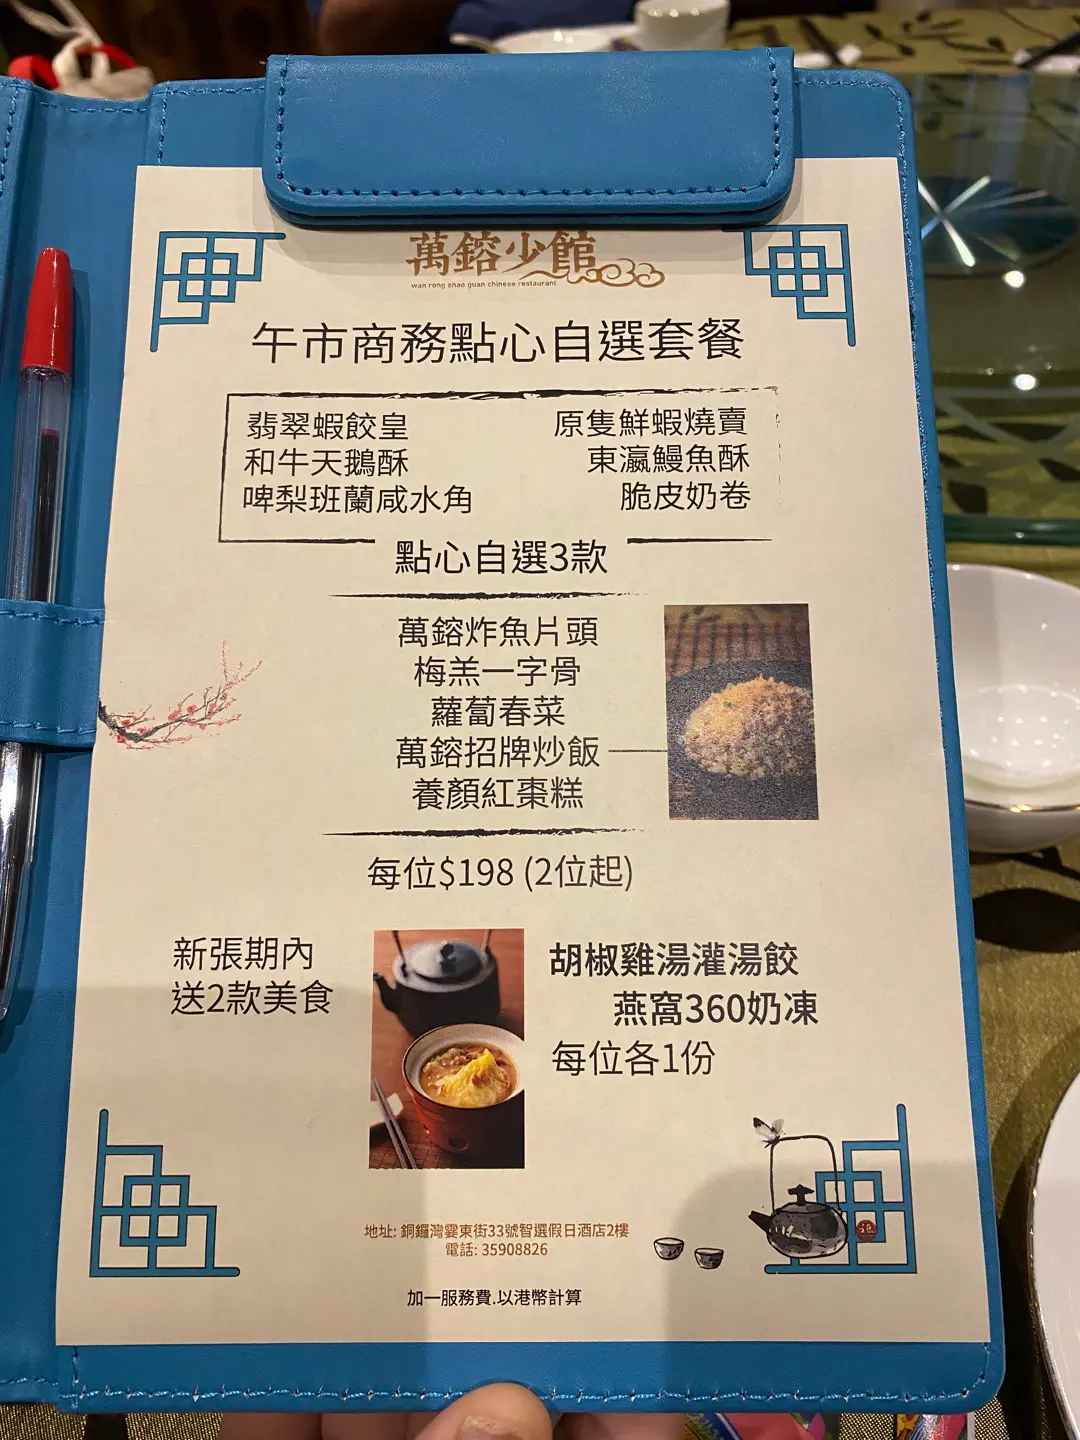 萬鎔少館
wan rong shao guan chinese restaurant
午市商務點心自選套餐
翡翠蝦餃皇 原隻鮮蝦燒賣
和牛天鵝酥 東瀛鰻魚酥
啤梨班蘭咸水角 脆皮奶卷
點心自選3款
萬鎔炸魚片頭
梅羔一字骨
蘿蔔春菜
萬鎔招牌炒飯
養顏紅棗糕
每位$198 (2位起)
新張期內
送2款美食
胡椒雞湯灌湯餃
燕窩360奶凍
每位各1份
地址: 銅鑼灣霎東街33號智選假日酒店2樓
電話: 35908826
加一服務費.以港幣計算